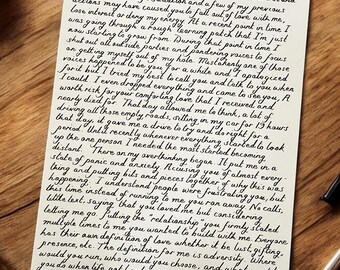 actions may have caused you to fall out of love with me,
lose interest or deny my energy. At a recent point in time I
was going through a rough learning patch that I'm just
now starting to grow from. During that point in time I
shut out all outside parties and pondering voices to focus
on getting myself out of my hole. Mistakenly one of those
voices happened to be you, for a while and I apologized
for it but I tried my best to call you, and talk to you when
I could. I even dropped everything and came to see you. A
worth risk for your comforting love that I received and
nearly died for. That day allowed me to think, a lot of
driving all those empty roads, selling in my car for 13 hours
that day, it gave me a drive to try and do right for a
period. Until recently whenever everything started to look
up the one person I needed the most started becoming
distant. There on my overthinking began. It put me in a
state of panic and anxiety. Accusing you of almost every
thing and putting bits and pieces together of why this was
happening. I understand people were frustrating you, but
this time instead of running to me you ran away. No calls,
little text, saying that you loved me but considering
telling me go. Putting the "relationship" you firmly stated
multiple times to me you wanted to build with me. Everyone
has their own definition of love whether it be but gifting,
presence, etc. The definition for me is adversity. Where
would you run, who would you choose, and what would
you do when life not